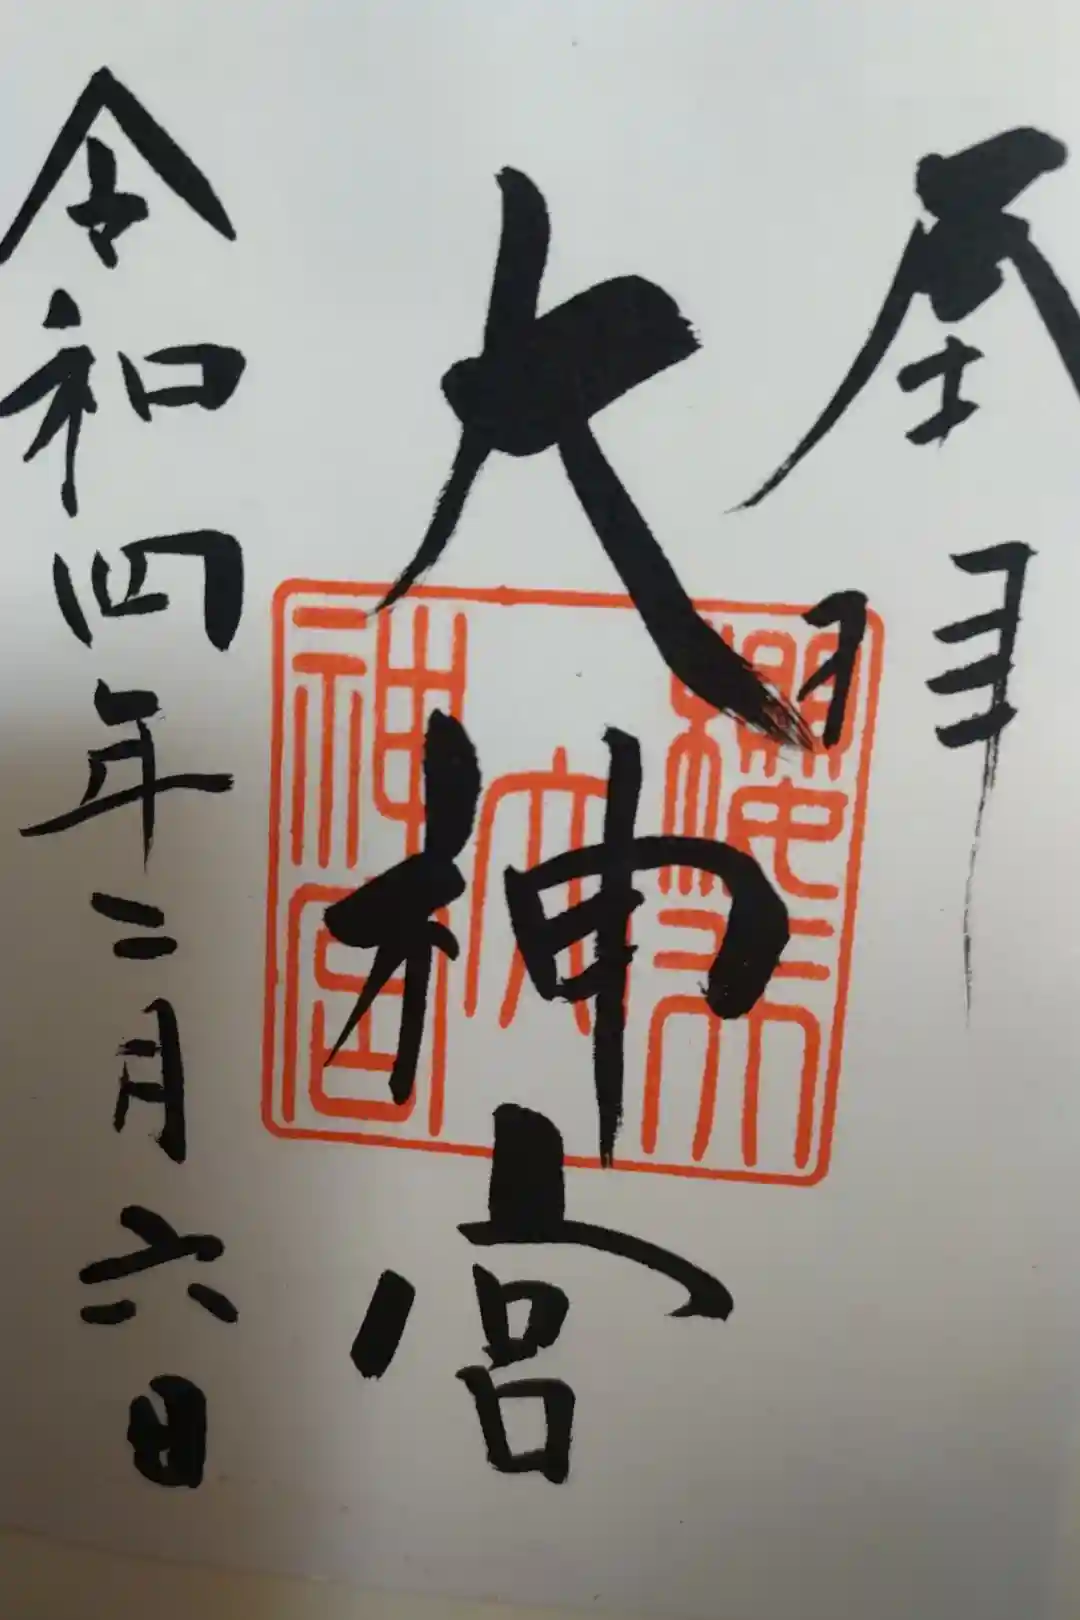 奉拝
大神宮
令和四年二月六日
神宮